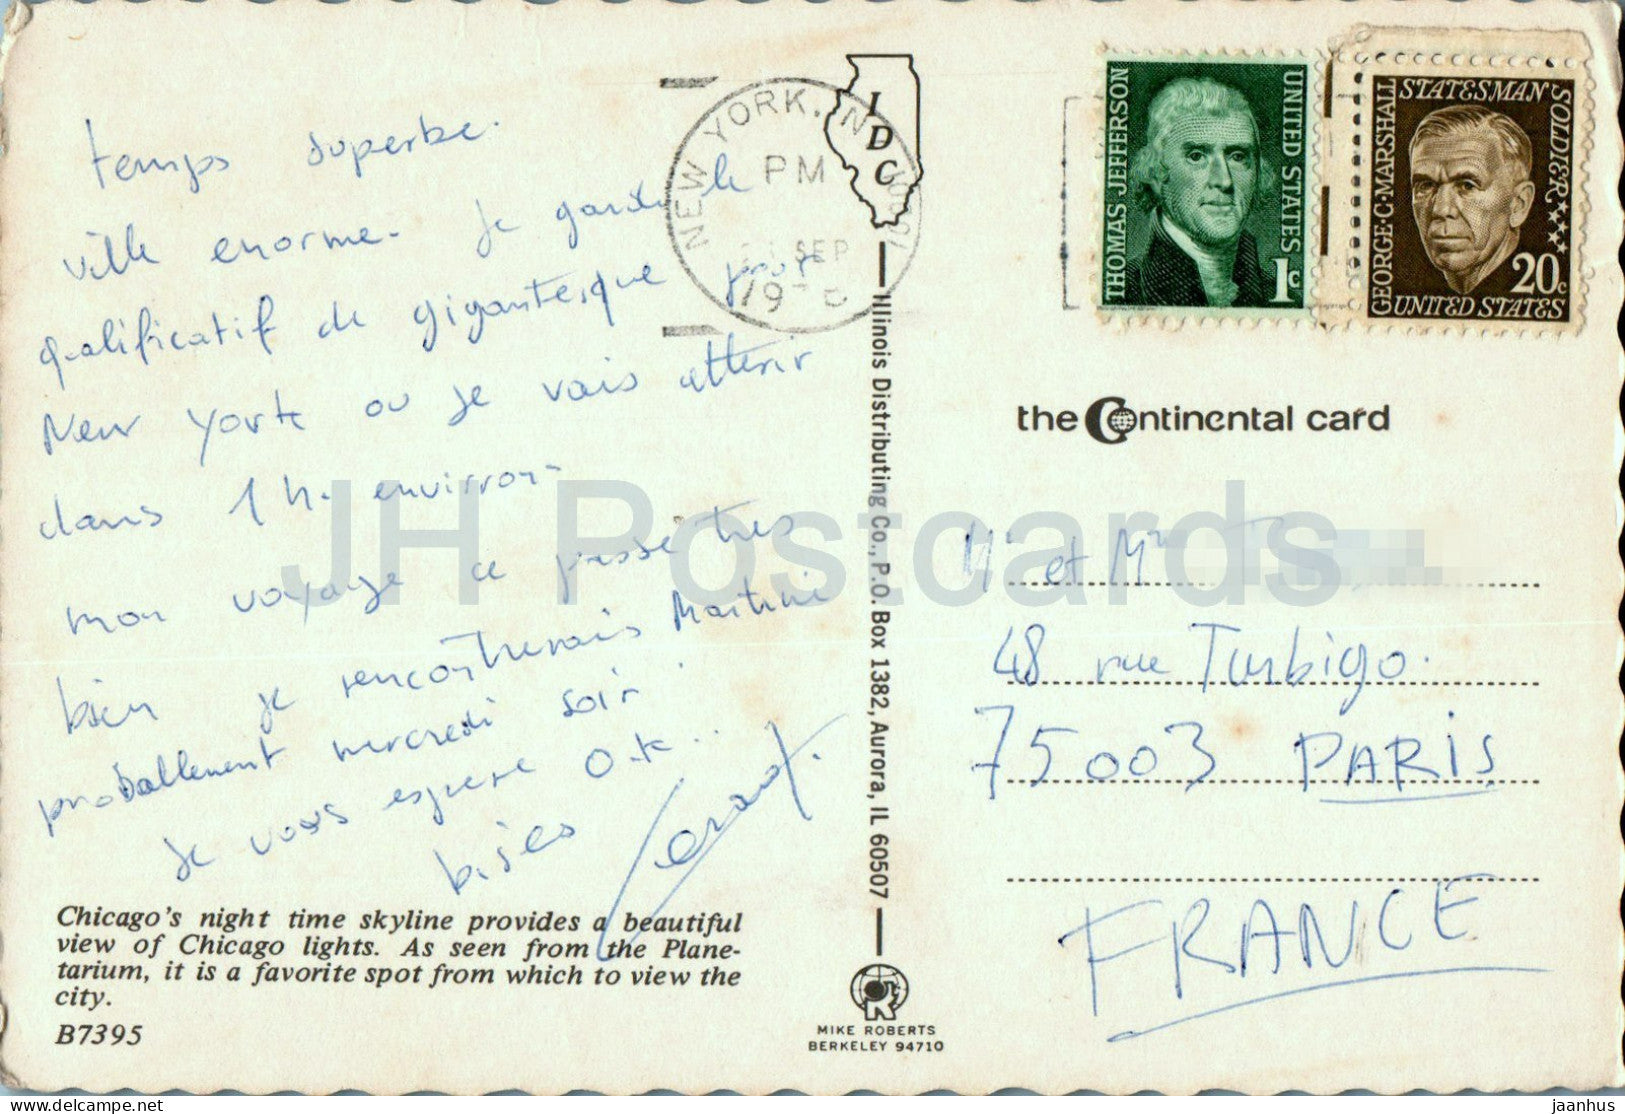 temps superbe.
ville enorme. Je garde le
qualificatif de gigantesque pour
New York ou je vais atterir
dans 1 h. environ.
mon voyage ce passe tres
bien je rencontrerais Martine
probablement mercredi soir.
Je vous espere O.K..
bises
Chicago's night time skyline provides a beautiful
view of Chicago lights. As seen from the Plane-
tarium, it is a favorite spot from which to view the
city.
B7395
NEW YORK, N
PM
SEP
IDC
Illinois Distributing Co., P.O. Box 1382, Aurora, IL 60507
MIKE ROBERTS
BERKELEY 94710
THOMAS JEFFERSON
UNITED STATES
1c
GEORGE·C·MARSHALL
STATESMAN
SOLDIER
20c
UNITED STATES
the Continental card
Mr et Mme
48 rue Turbigo.
75003 PARIS
FRANCE
JH Postcards
delcampe.net
jaanhus